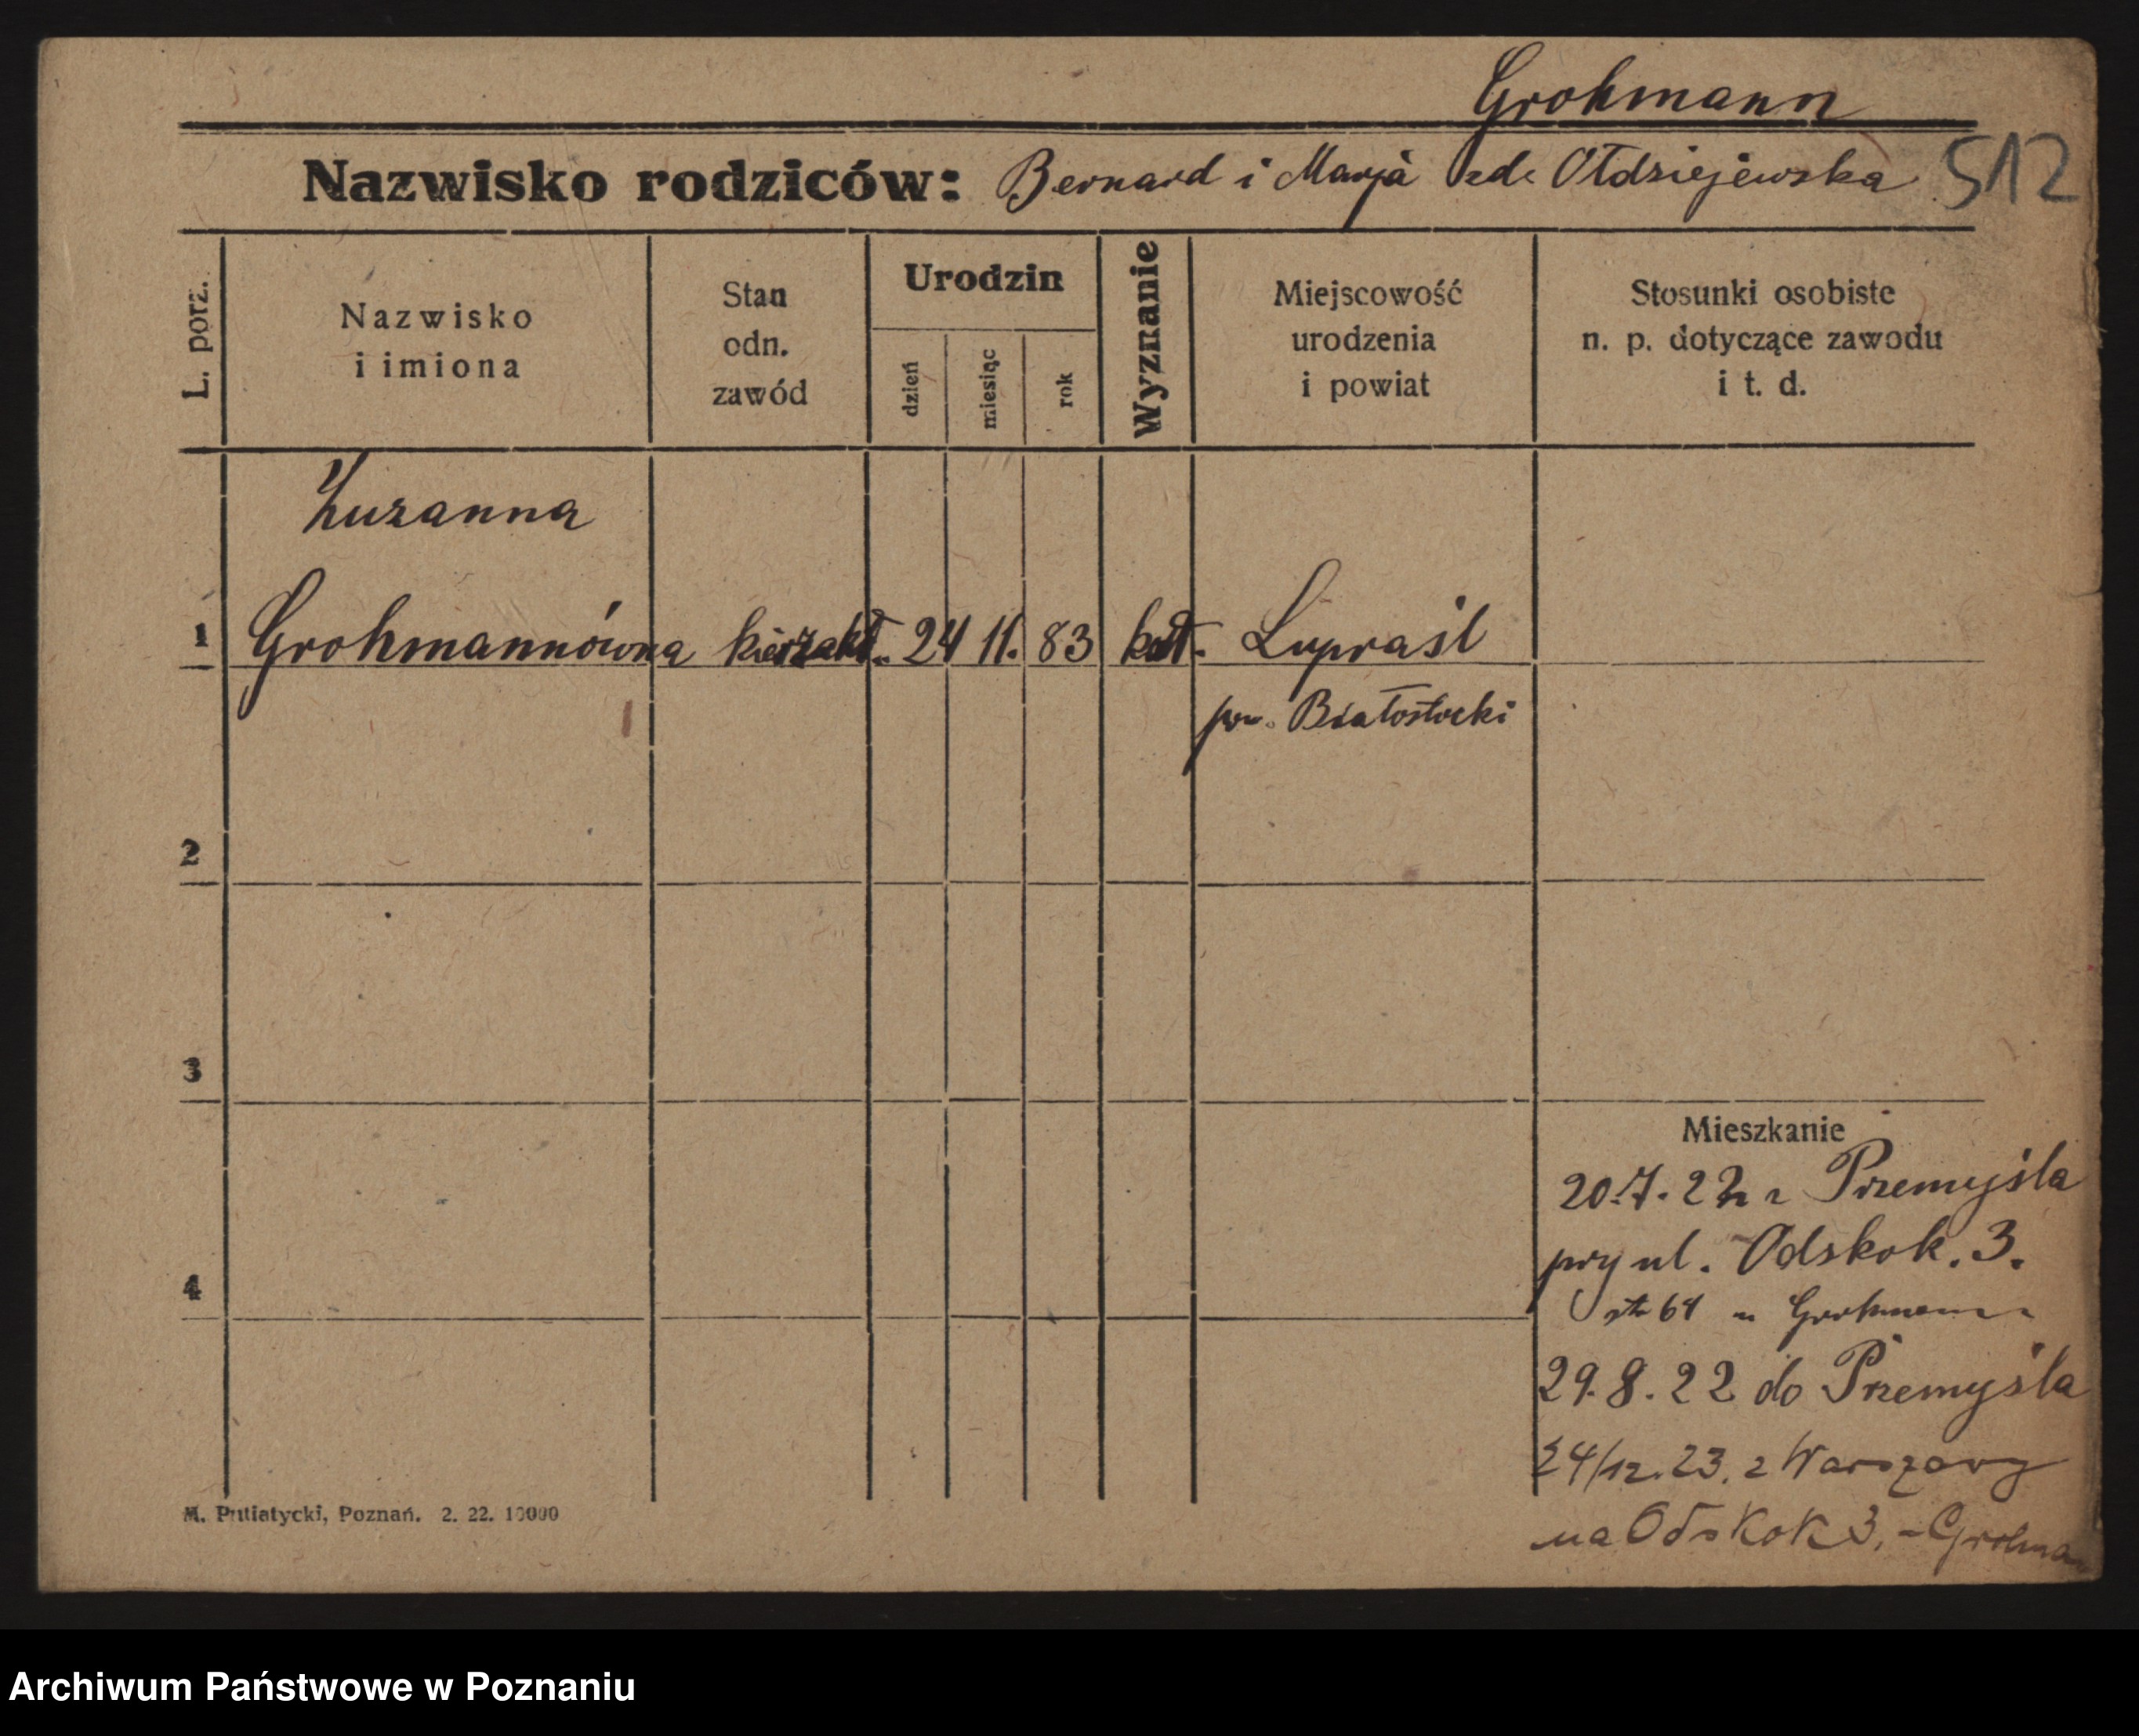 Grohmann
Nazwisko rodziców: Bernard i Marja zd. Ołdziejewska 512
L. porz.
Nazwisko
i imiona
Stan
odn.
zawód
Urodzin
dzień
miesiąc
rok
Wyznanie
Miejscowość
urodzenia
i powiat
Stosunki osobiste
n. p. dotyczące zawodu
i t. d.
Zuzanna
1 Grohmannówna 24 11. 83 kat. Supraśl
pow. Białostocki
2
3
4
Mieszkanie
20.7.22 z Przemyśla
przy ul. Odskok. 3.
u Grohmann
29.8.22 do Przemyśla
24/12.23. z Warszawy
na Odskok 3, Grohman
M. Putiatycki, Poznań. 2. 22. 10000
Archiwum Państwowe w Poznaniu